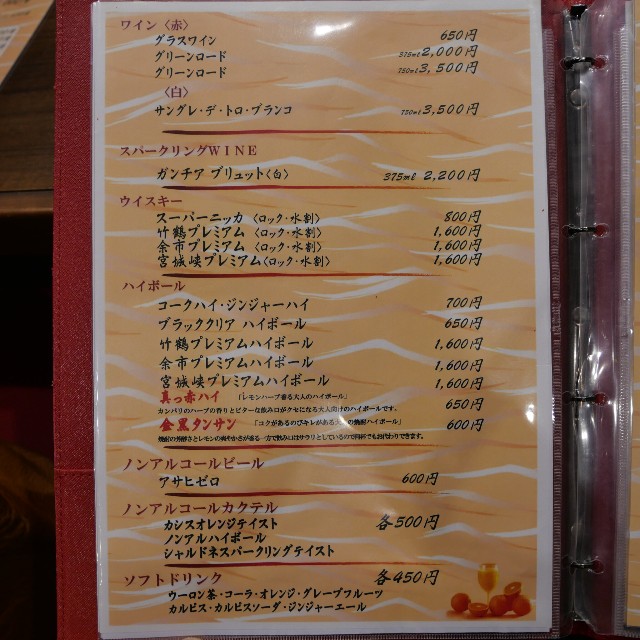 ワイン〈赤〉
グラスワイン 650円
グリーンロード 375ml 2,000円
グリーンロード 750ml 3,500円
〈白〉
サングレ・デ・トロ・ブランコ 750ml 3,500円
スパークリングWINE
ガンチア ブリュット〈白〉 375ml 2,200円
ウイスキー
スーパーニッカ〈ロック・水割〉 800円
竹鶴プレミアム〈ロック・水割〉 1,600円
余市プレミアム〈ロック・水割〉 1,600円
宮城峡プレミアム〈ロック・水割〉 1,600円
ハイボール
コークハイ・ジンジャーハイ 700円
ブラッククリア ハイボール 650円
竹鶴プレミアムハイボール 1,600円
余市プレミアムハイボール 1,600円
宮城峡プレミアムハイボール 1,600円
真っ赤ハイ 「レモンハーブ香る大人のハイボール」 650円
カンパリのハーブの香りとビターな飲み口がクセになる大人向けのハイボールです。
金黒タンサン 「コクがあるのにキレがある 焼酎ハイボール」 600円
焼酎の芳醇さとレモンの爽やかさが香る一方で飲み口はサラリとしているので何杯でもお代わりできます。
ノンアルコールビール
アサヒゼロ 600円
ノンアルコールカクテル
カシスオレンジテイスト 各500円
ノンアルハイボール
シャルドネスパークリングテイスト
ソフトドリンク 各450円
ウーロン茶・コーラ・オレンジ・グレープフルーツ
カルピス・カルピスソーダ・ジンジャーエール